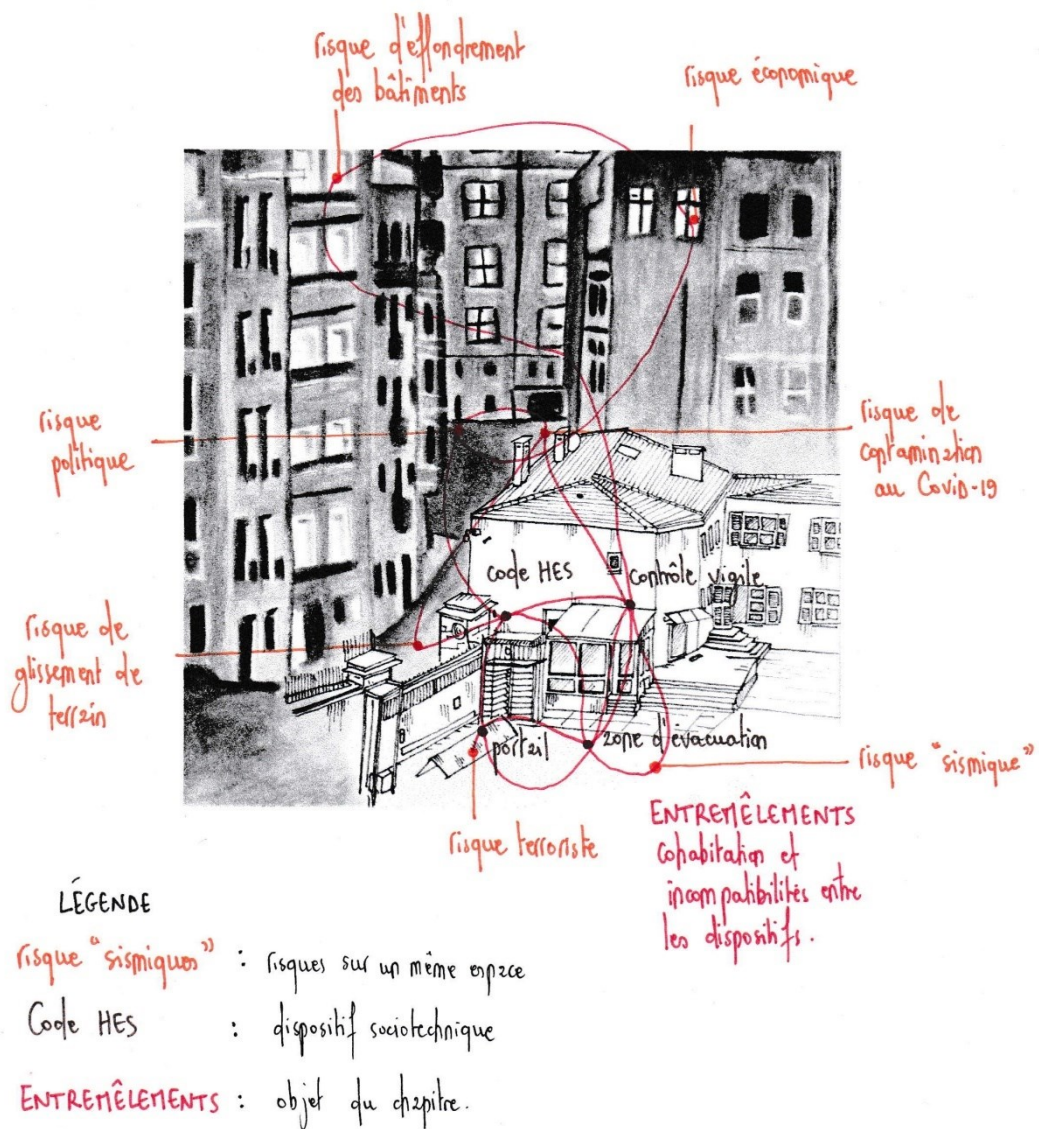 risque d'effondrement
des bâtiments
risque économique
risque
politique
risque de
contamination
au Covid-19
Code HES
contrôle vigile
risque de
glissement de
terrain
portail
zone d'évacuation
risque "sismique"
risque terroriste
ENTREMÊLEMENTS
cohabitation et
incompatibilités entre
les dispositifs.
LÉGENDE
risque "sismiques" : risques sur un même espace
Code HES : dispositif sociotechnique
ENTREMÊLEMENTS : objet du chapitre.